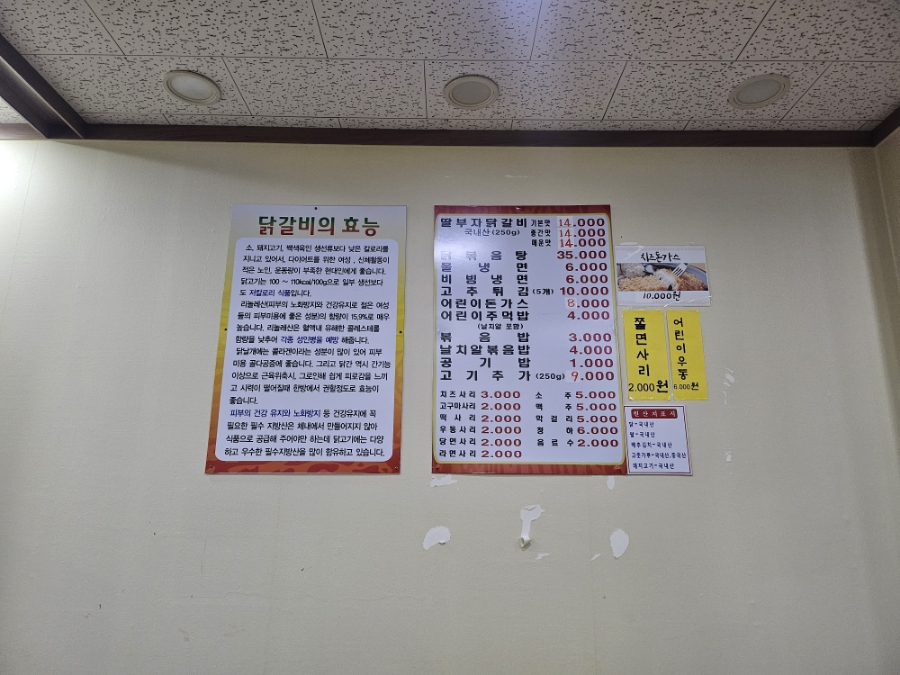 닭갈비의 효능
소, 돼지고기, 백색육인 생선류보다 낮은 칼로리를
지니고 있어서, 다이어트를 위한 여성, 신체활동이
적은 노인, 운동량이 부족한 현대인에게 좋습니다.
닭고기는 100 ~ 110kcal/100g으로 일부 생선보다
도 저칼로리 식품입니다.
리놀레산(피부의 노화방지와 건강유지로 젊은 여성
들의 피부미용에 좋은 성분)의 함량이 15.9%로 매우
높습니다. 리놀레산은 혈액내 유해한 콜레스테롤
함량을 낮추어 각종 성인병을 예방 해줍니다.
닭날개에는 콜라겐이라는 성분이 많이 있어 피부
미용 골다공증에 좋습니다. 그리고 닭간 역시 간기능
이상으로 근육위축시, 그로인해 쉽게 피로감을 느끼
고 시력이 떨어질때 한방에서 권할정도로 효능이
좋습니다.
피부의 건강 유지와 노화방지 등 건강유지에 꼭
필요한 필수 지방산은 체내에서 만들어지지 않아
식품으로 공급해 주어야만 하는데 닭고기에는 다양
하고 우수한 필수지방산을 많이 함유하고 있습니다.
딸부자닭갈비 기본맛 14.000
국내산(250g) 중간맛 14.000
매운맛 14.000
닭볶음탕 35.000
물냉면 6.000
비빔냉면 6.000
고추튀김(5개) 10.000
어린이돈가스 8.000
어린이주먹밥 4.000
(날치알 포함)
볶음밥 3.000
날치알볶음밥 4.000
공기밥 1.000
고기추가(250g) 9.000
치즈사리 3.000 소주 5.000
고구마사리 2.000 맥주 5.000
떡사리 2.000 막걸리 5.000
우동사리 2.000 청하 6.000
당면사리 2.000 음료수 2.000
라면사리 2.000
치즈돈가스
10.000원
쫄면사리
2.000원
어린이우동
6.000원
원산지표시
닭-국내산
쌀-국내산
배추김치-국내산
고춧가루-국내산,중국산
돼지고기-국내산